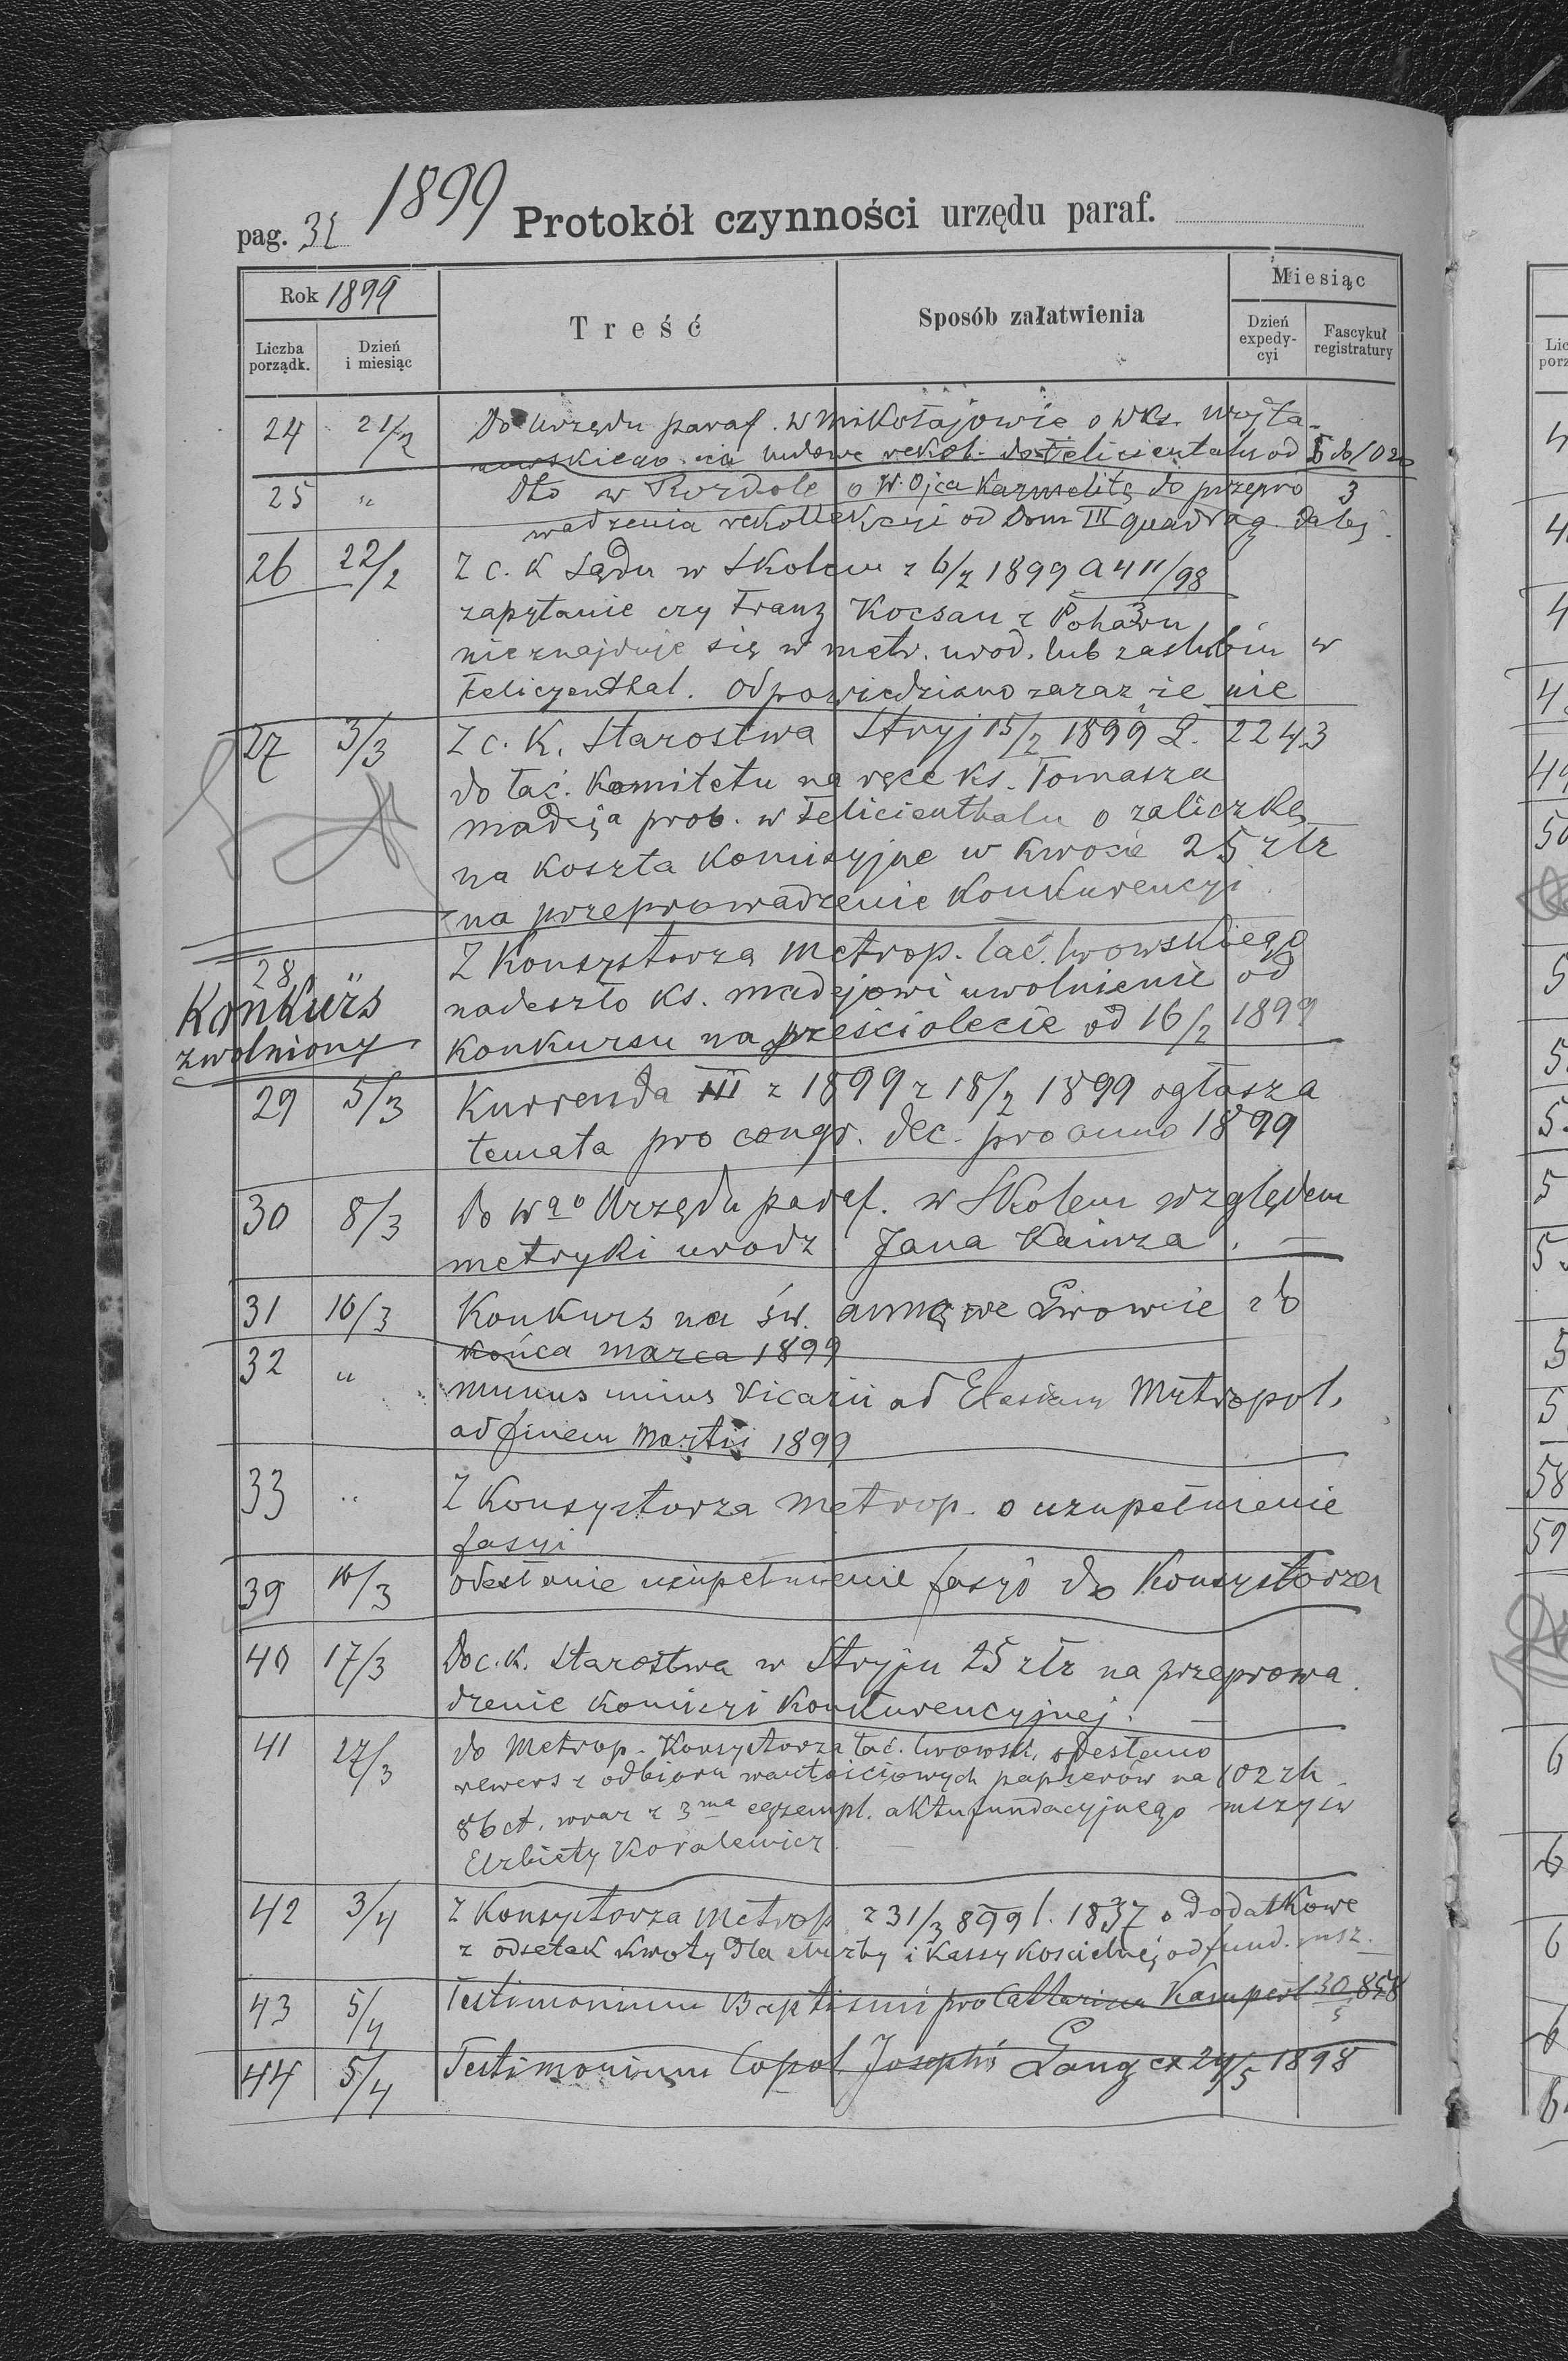 pag. 32 1899 Protokół czynności urzędu paraf.
Rok 1899
Liczba porządk.
Dzień i miesiąc
Treść
Sposób załatwienia
Miesiąc
Dzień expedycyi
Fascykuł registratury
24 21/2 Do Urzędu paraf. w Mikołajowie o Wks. Wojta-
25 " Dto w Rozdole o W. Ojca Karmelitę do przepro 3
wadzenia rekollekcyi od Dom III quadrag.
26 22/2 Z c. k Sądu w Skolem z 6/2 1899 A 411/98
zapytanie czy Franz Kocsan z
nie znajduje się w metr. urod. lub zaslubin w
Felicyenthal. Odpowiedziano zaraz że nie
27 3/3 Z c. K. Starostwa Stryj 15/2 1899 L. 2243
do łać. Komitetu na ręce ks. Tomasza
Madeja prob. w Felicienthalu o zaliczkę
na koszta komisyjne w kwocie 25 złr
na przeprowadzenie Konkurencyi
28 Z Konsystorza Metrop. łać. lwowskiego
Konkurs nadeszło ks. Madejowi uwolnienie od
zwolniony konkursu na sześciolecie od 16/2 1899
29 5/3 Kurrenda III z 1899 z 18/2 1899 ogłasza
temata pro congr. dec. pro anno 1899
30 8/3 do Wgo Urzędu paraf. w Skolem względem
metryki urodz. Jana Kainza. —
31 10/3 Konkurs na św. Annę we Lwowie
końca marca 1899
32 " munus unius Vicarii ad Metropol.
ad finem Martii 1899
33 " Z Konsystorza metrop. o uzupełnienie
fasyi
39 10/3 odesłanie uzupełnienie fasyi do Konsystorza
40 17/3 Do c. k. Starostwa w Stryju 25 złr na przeprowa
dzenie komisyi Konkurencyjnej.
41 27/3 do Metrop. Konsystorza łać. lwowski. odesłano
rewers z odbioru wartościowych papierów na 102 zł.
86 ct. wraz z 3ma egzempl. aktu fundacyjnego mszy św
Elzbiety Kovalewicz.
42 3/4 Z Konsystorza Metrop. z 31/3 899 l. 1837 o dodatkowe
z odsetek kwoty dla służby i Kassy Koscielnéj od fund. msz.
43 5/4 Testimonium Baptismi pro Catharina
44 5/4 Testimonium Copul. Josephi Lang ex 24/5 1898